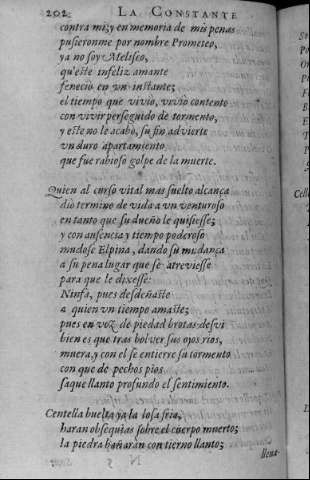 202   LA CONSTANTE
contra mi; y en memoria de mis penas
pusieronme por nombre Prometeo,
ya no soy Meliseo,
qu'este infeliz amante
fenecio en vn instante;
el tiempo que viuio, viuio contento
con viuir perseguido de tormento,
y este no le acabò, su fin aduierte
vn duro apartamiento
que fue rabioso golpe de la muerte.
Quien al curso vital mas suelto alcança
dio termino de vida a vn venturoso
en tanto que su dueño le quisiesse;
y con ausencia y tiempo poderoso
mudose Elpina, dando su mudança
a su pena lugar que se atreuiesse
para que le dixesse:
Ninfa, pues desdeñaste
a quien vn tiempo amaste;
pues en voz de piedad brotas
bien es que tras boluer sus ojos rios,
muera, y con el se entierre su tormento
con que de pechos pios
saque llanto profundo el sentimiento.
Centella buelta ya la losa fria,
haran obsequias sobre el cuerpo muerto;
la piedra bañaran con tierno llanto;
N 5
llena-